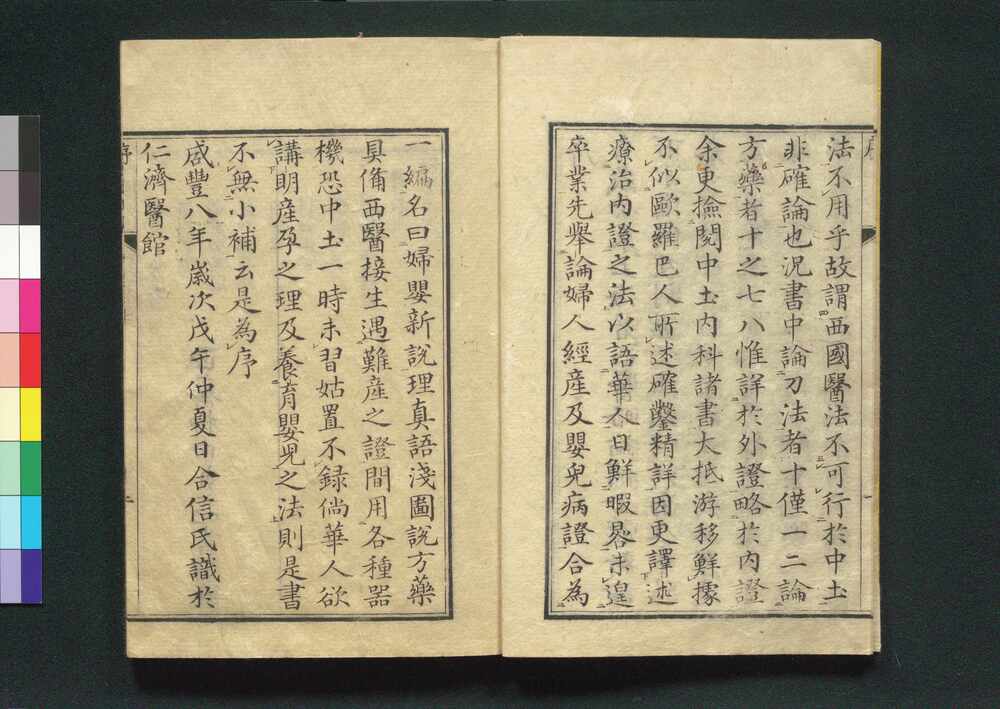 法不用乎故謂西國醫法不可行於中土
非確論也況書中論刀法者十僅一二論
方藥者十之七八惟詳於外證略於內證
余更撿閱中土內科諸書大抵游移鮮據
不似歐羅巴人所述確鑿精詳因更譯述
療治內證之法以語華人日鮮暇晷未遑
卒業先舉論婦人經產及嬰兒病證合為
一編名曰婦嬰新說理真語淺圖說方藥
具備西醫接生遇難產之證間用各種器
機恐中土一時未習姑置不録倘華人欲
講明產孕之理及養育嬰兒之法則是書
不無小補云是為序
咸豐八年歲次戊午仲夏日合信氏識於
仁濟醫館
序